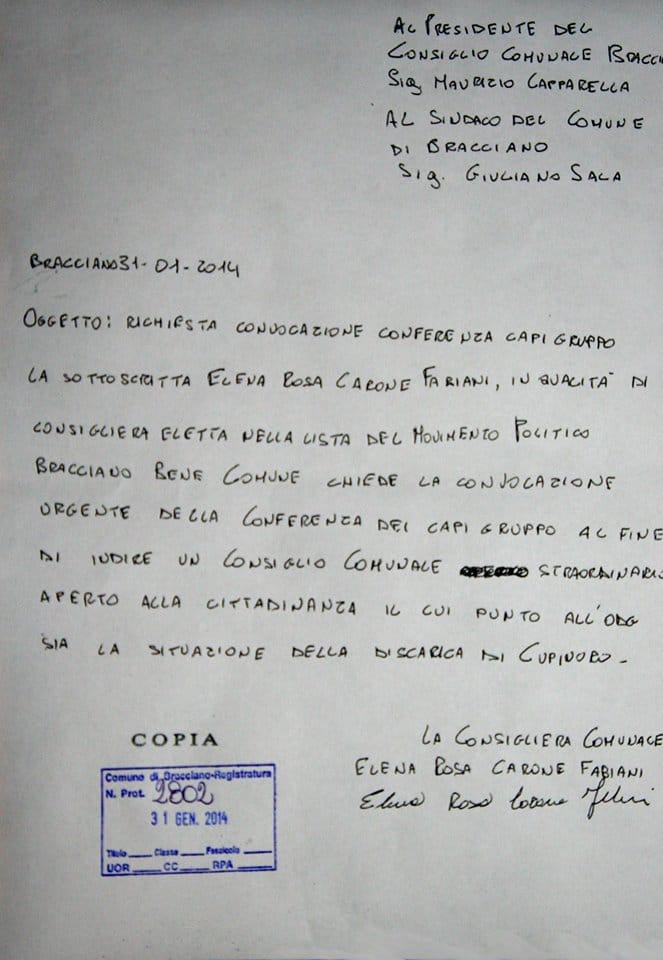 AL PRESIDENTE DEL
CONSIGLIO COMUNALE BRACCI
Sig MAURIZIO CAPPARELLA
AL SINDACO DEL COMUNE
DI BRACCIANO
Sig. GIULIANO SALA
BRACCIANO 31-01-2014
OGGETTO: RICHIESTA CONVOCAZIONE CONFERENZA CAPI GRUPPO
LA SOTTOSCRITTA ELENA ROSA CARONE FABIANI, IN QUALITÀ DI
CONSIGLIERA ELETTA NELLA LISTA DEL MOVIMENTO POLITICO
BRACCIANO BENE COMUNE CHIEDE LA CONVOCAZIONE
URGENTE DELLA CONFERENZA DEI CAPI GRUPPO AL FINE
DI INDIRE UN CONSIGLIO COMUNALE STRAORDINARIO
APERTO ALLA CITTADINANZA IL CUI PUNTO ALL'ODG
SIA LA SITUAZIONE DELLA DISCARICA DI CUPINORO-
COPIA
LA CONSIGLIERA COMUNALE
ELENA ROSA CARONE FABIANI
Elena Rosa Carone Fabiani
Comune di Bracciano-Registratura
N. Prot. 2802
31 GEN. 2014
Titolo ____ Classe ____ Fascicolo ____
UOR ____ CC ____ RPA ____